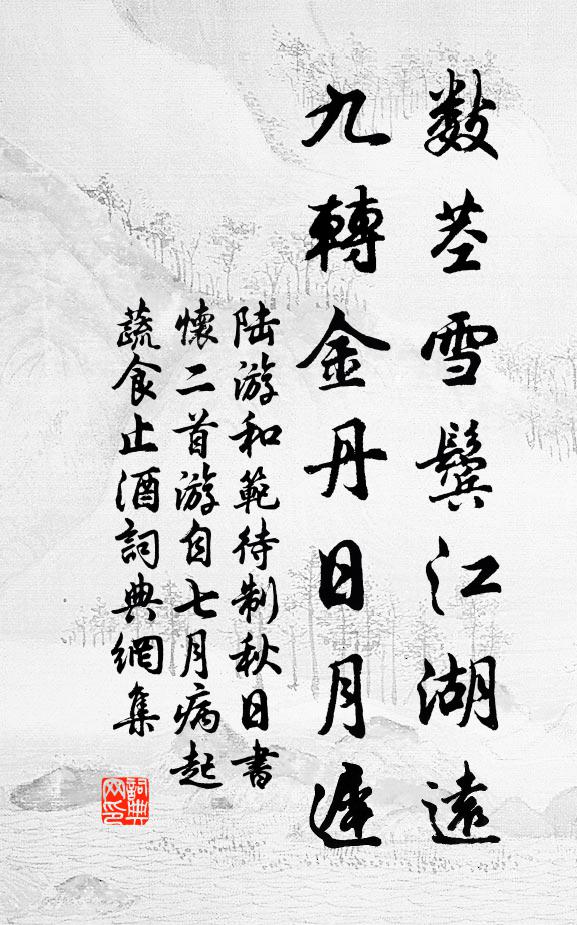 数茎雪鬢江湖遠
九轉金丹日月遲
陆游和範待制秋日書
懷二首游自七月病起
蔬食止酒詞典網集
詞典
网印